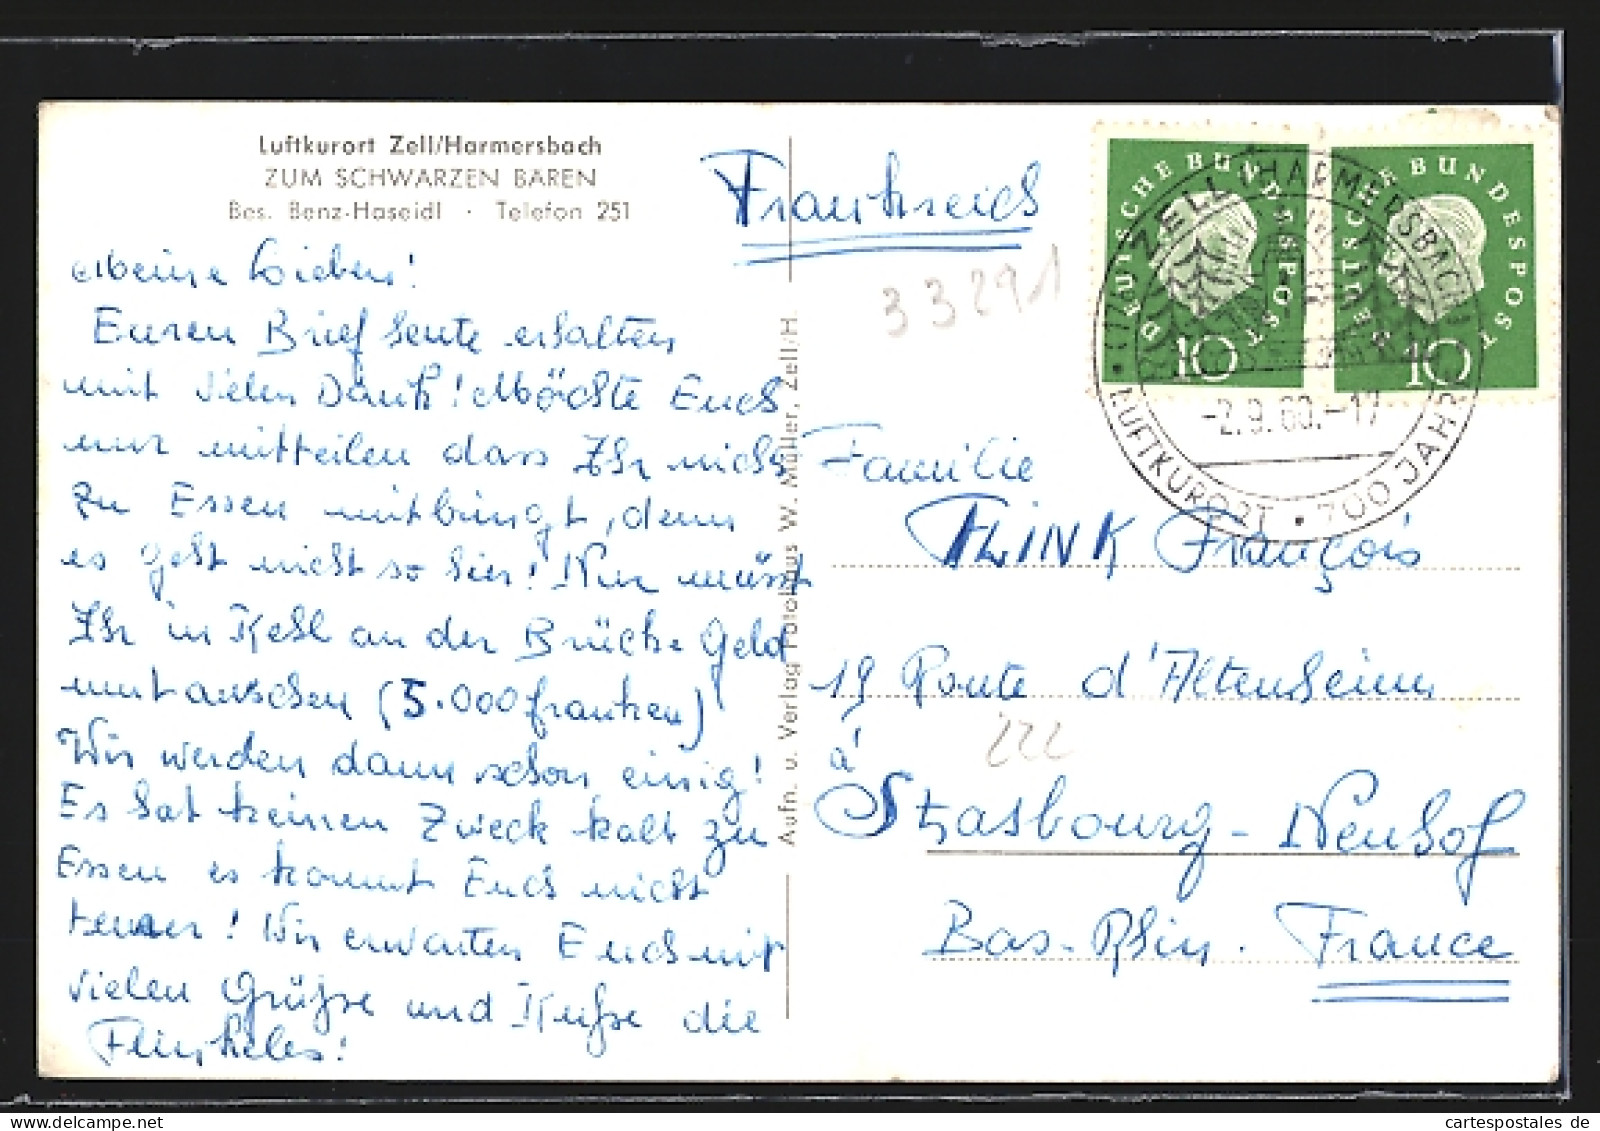 Luftkurort Zell/Harmersbach
ZUM SCHWARZEN BÄREN
Bes. Benz-Haseidl · Telefon 251
Meine Lieben!
Euren Brief heute erhalten
mit vielen Dank! Möchte Euch
nur mitteilen dass Ihr nichts
zu Essen mitbringt, denn
es geht nicht so hier! Nur müsst
Ihr in Kehl an der Brücke Geld
umtauschen (5.000 franken)
Wir werden dann schon einig!
Es hat keinen Zweck kalt zu
Essen es kommt Euch nicht
teurer! Wir erwarten Euch mit
vielen Grüße und Küße die
Flinkeles!
Aufn. u. Verlag Fotohaus W. Müller, Zell/H.
Frankreich
33291
DEUTSCHE BUNDESPOST
10
DEUTSCHE BUNDESPOST
10
ZELL (HARMERSBACH)
-2.9.60.-17
LUFTKURORT • 700 JAHR
Familie
FLINK François
19 Route d'Altenheim
222
à
Strasbourg - Neuhof
Bas-Rhin. France
www.cartespostales.de